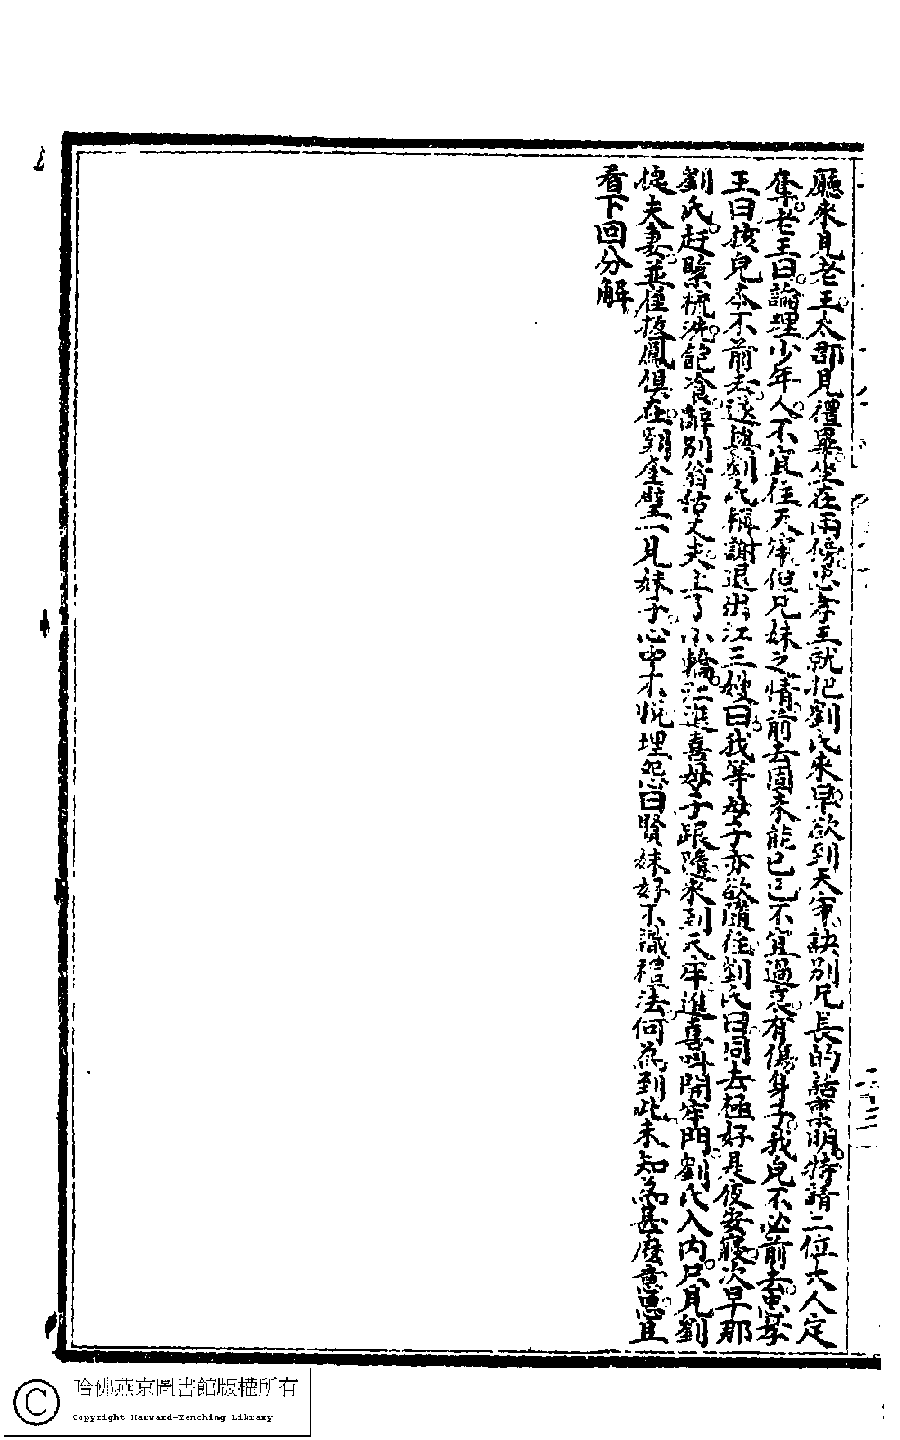 廳來見老王太郡見禮畢坐在兩傍忠孝王就把劉氏來早欲到天牢訣別兄長的話稟明特請二位大人定
奪老王曰論理少年人不宜往天牢但兄妹之情前去固未能已已不宜過悲有傷身子我兒不必前去忠孝
王曰孩兒本不前去遂與劉氏稱謝退出江三嫂曰我等母子亦欲隨往劉氏曰同去極好是夜安寢次早那
劉氏赶緊梳洗飽飡辭別翁姑丈夫上了小轎江進喜母子跟隨來到天牢進喜叫開牢門劉氏入內只見劉
捷夫妻並崔扳鳳俱在劉奎璧一見妹子心中不悅埋怨曰賢妹好不識禮法何為到此未知為甚庅意思且
看下回分解
二十三
哈佛燕京圖書館版權所有
Copyright Harvard-Yenching Library